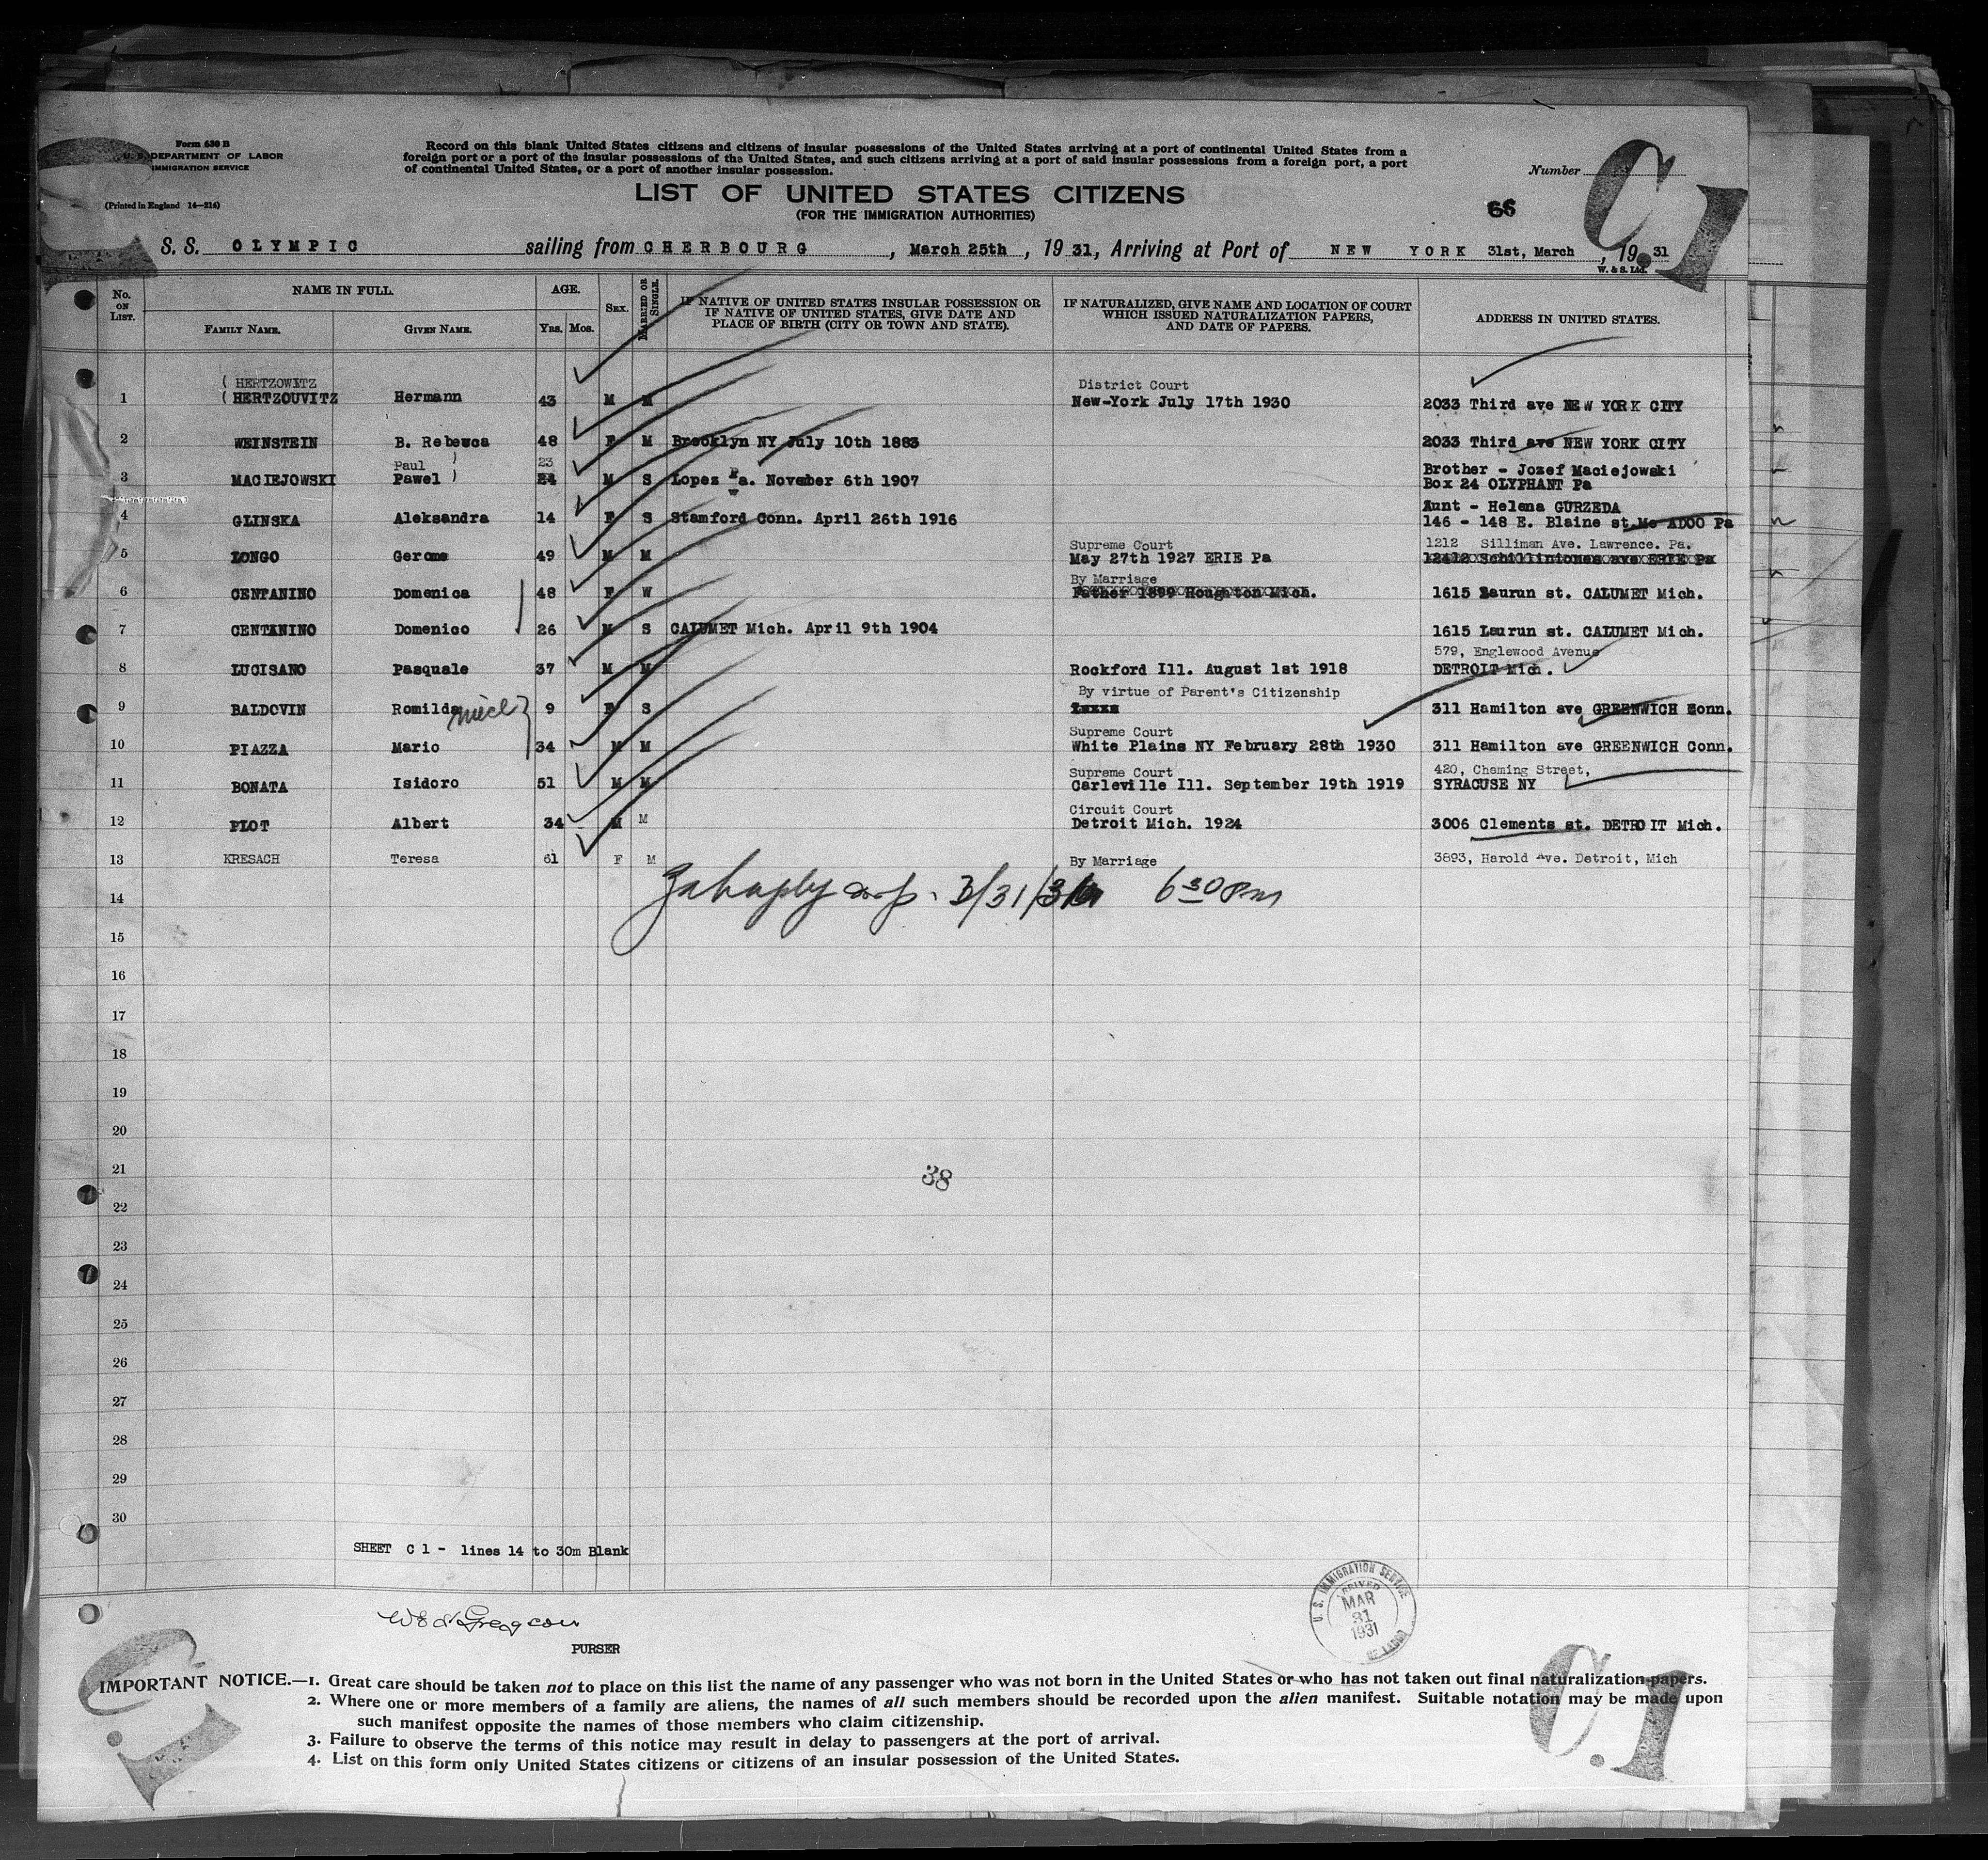 Form 630 B
U. S. DEPARTMENT OF LABOR
IMMIGRATION SERVICE
(Printed in England 14—214)
Record on this blank United States citizens and citizens of insular possessions of the United States arriving at a port of continental United States from a
foreign port or a port of the insular possessions of the United States, and such citizens arriving at a port of said insular possessions from a foreign port, a port
of continental United States, or a port of another insular possession.
Number
C.1
LIST OF UNITED STATES CITIZENS
(FOR THE IMMIGRATION AUTHORITIES)
66
S. S. OLYMPIC sailing from CHERBOURG, March 25th, 1931, Arriving at Port of NEW YORK 31st, March, 19 31
W. & S. Ltd.
No. ON LIST. NAME IN FULL. AGE. SEX. MARRIED OR SINGLE. IF NATIVE OF UNITED STATES INSULAR POSSESSION OR IF NATIVE OF UNITED STATES, GIVE DATE AND PLACE OF BIRTH (CITY OR TOWN AND STATE). IF NATURALIZED, GIVE NAME AND LOCATION OF COURT WHICH ISSUED NATURALIZATION PAPERS, AND DATE OF PAPERS. ADDRESS IN UNITED STATES.
FAMILY NAME. GIVEN NAME. YRS. MOS.
( HERTZOWITZ District Court
1 ( HERTZOUVITZ Hermann 43 M M New-York July 17th 1930 2033 Third ave NEW YORK CITY
2 WEINSTEIN B. Rebecca 48 F M Brooklyn NY July 10th 1883 2033 Third ave NEW YORK CITY
Paul ) 23 Brother - Jozef Maciejowski
3 MACIEJOWSKI Pawel ) 24 M S Lopez Pa. November 6th 1907 Box 24 OLYPHANT Pa
Aunt - Helena GURZEDA
4 GLINSKA Aleksandra 14 F S Stamford Conn. April 26th 1916 146 - 148 E. Blaine st Mc ADOO Pa
Supreme Court 1212 Silliman Ave. Lawrence. Pa.
5 LONGO Gerome 49 M M May 27th 1927 ERIE Pa 12412 Schilliniones ave ERIE Pa
By Marriage
6 CENTANINO Domenica 48 F W Father 1899 Houghton Mich. 1615 Laurun st. CALUMET Mich.
7 CENTANINO Domenico 26 M S CALUMET Mich. April 9th 1904 1615 Laurun st. CALUMET Mich.
579, Englewood Avenue
8 LUCISANO Pasquale 37 M M Rockford Ill. August 1st 1918 DETROIT Mich.
By virtue of Parent's Citizenship
9 BALDOVIN Romilda niece 9 F S 311 Hamilton ave GREENWICH Conn.
Supreme Court
10 PIAZZA Mario 34 M M White Plains NY February 28th 1930 311 Hamilton ave GREENWICH Conn.
Supreme Court 420, Cheming Street,
11 BONATA Isidoro 51 M M Carleville Ill. September 19th 1919 SYRACUSE NY
Circuit Court
12 PLOT Albert 34 M M Detroit Mich. 1924 3006 Clements st. DETROIT Mich.
13 KRESACH Teresa 61 F M By Marriage 3893, Harold Ave. Detroit, Mich
14 3/31/31 6 30 Pm
15
16
17
18
19
20
21 38
22
23
24
25
26
27
28
29
30
SHEET C 1 - lines 14 to 30m Blank
U. S. IMMIGRATION SERVICE
MAR
31
1931
OF LABOR
PURSER
C.1
C.1
IMPORTANT NOTICE.—1. Great care should be taken not to place on this list the name of any passenger who was not born in the United States or who has not taken out final naturalization papers.
2. Where one or more members of a family are aliens, the names of all such members should be recorded upon the alien manifest. Suitable notation may be made upon
such manifest opposite the names of those members who claim citizenship.
3. Failure to observe the terms of this notice may result in delay to passengers at the port of arrival.
4. List on this form only United States citizens or citizens of an insular possession of the United States.